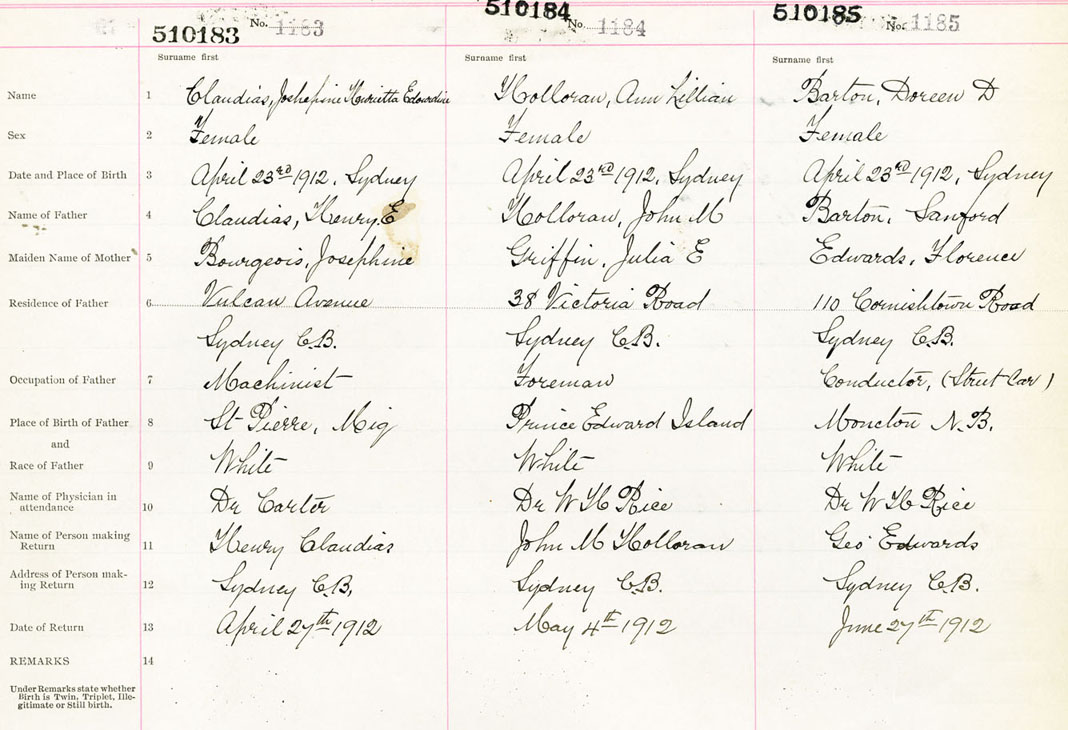 510183 No. 1183 510184 No. 1184 510185 No. 1185
Surname first Surname first Surname first
Name 1 Claudias, Joshephine Henrietta Edourdine Holloran, Ann Lillian Barton, Doreen D
Sex 2 Female Female Female
Date and Place of Birth 3 April 23rd 1912, Sydney April 23rd 1912, Sydney April 23rd 1912, Sydney
Name of Father 4 Claudias, Henry E Holloran, John M Barton, Sanford
Maiden Name of Mother 5 Bourgeois, Josephine Griffin, Julia E Edwards, Florence
Residence of Father 6 Vulcan Avenue 38 Victoria Road 110 Cornishtown Road
Sydney C.B. Sydney C.B. Sydney C.B.
Occupation of Father 7 Machinist Foreman Conductor, (Street Car)
Place of Birth of Father 8 St Pierre, Miq Prince Edward Island Moncton N.B.
and
Race of Father 9 White White White
Name of Physician in
attendance 10 Dr Carter Dr W H Rice Dr W H Rice
Name of Person making
Return 11 Henry Claudias John M Holloran Geo Edwards
Address of Person mak-
ing Return 12 Sydney C.B. Sydney C.B. Sydney C.B.
Date of Return 13 April 27th 1912 May 4th 1912 June 27th 1912
REMARKS 14
Under Remarks state whether
Birth is Twin, Triplet, Ille-
gitimate or Still birth.